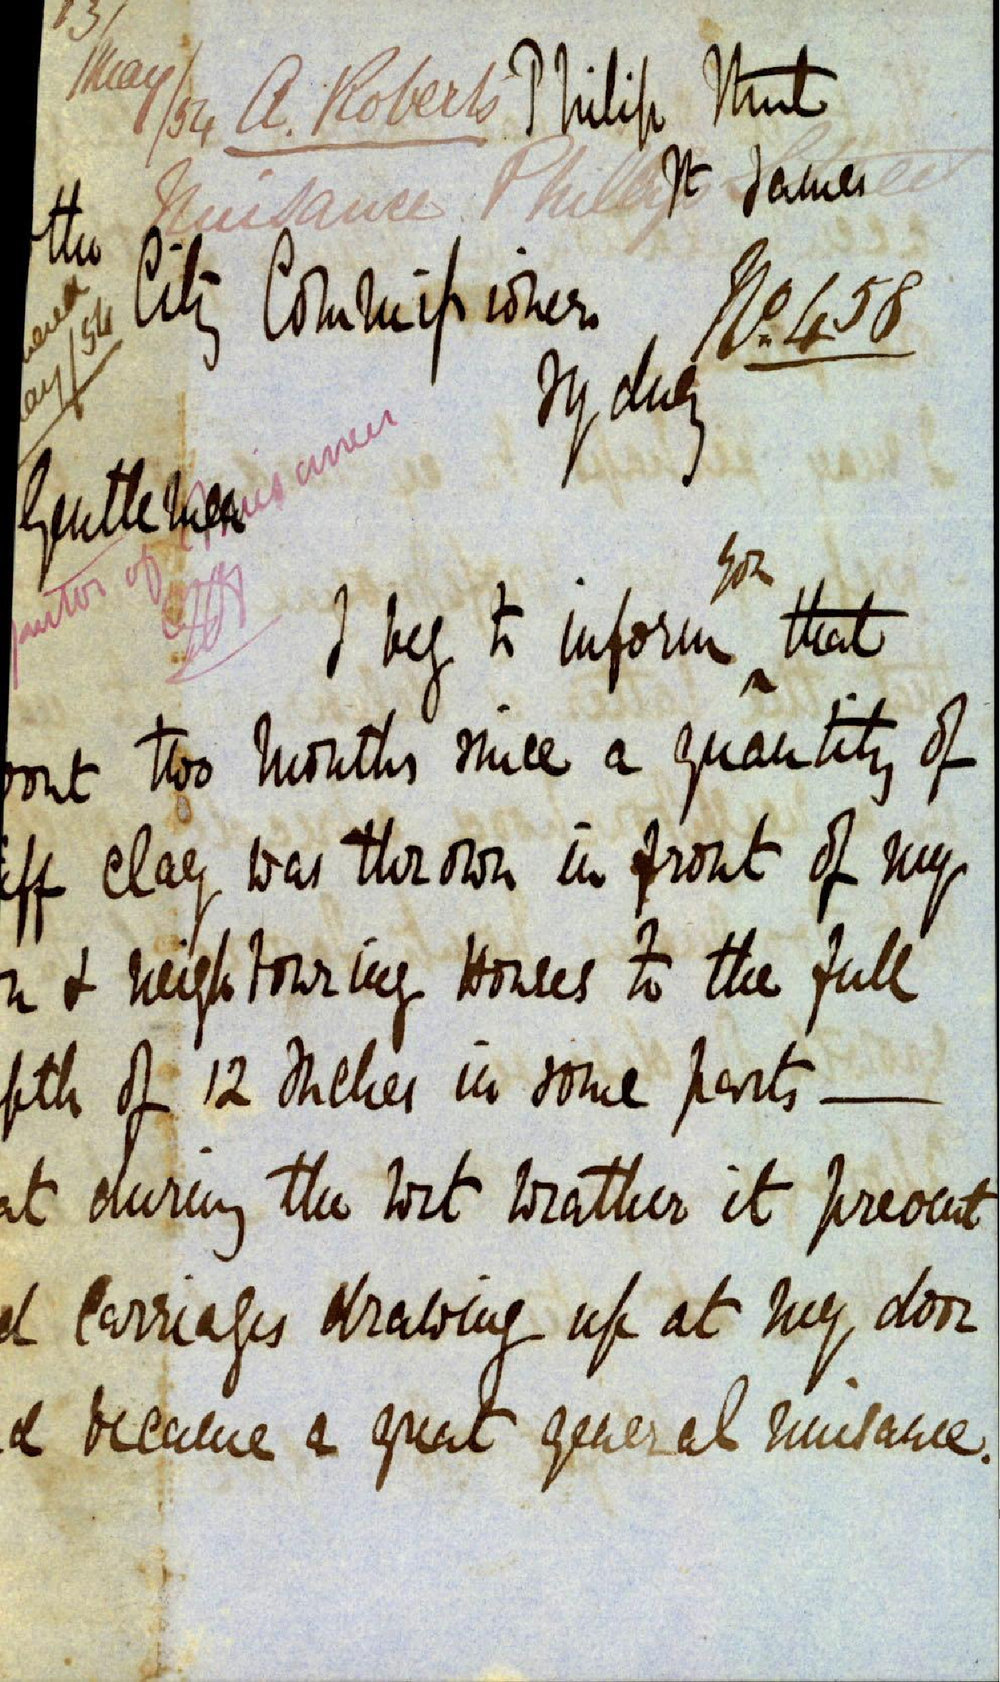 13/
May/54 A. Roberts
Philip Street
Nuisance Phillip Street
St James
the
City Commissioners
No. 458
Sydney
ay/54
Gentlemen
of Nuisances
I beg to inform you that
bout two Months since a quantity of
iff clay was thrown in front of my
n & neighbouring Houses to the full
pth of 12 Inches in some parts —
at during the wet weather it prevent
d Carriages drawing up at my door
d became a great general nuisance.